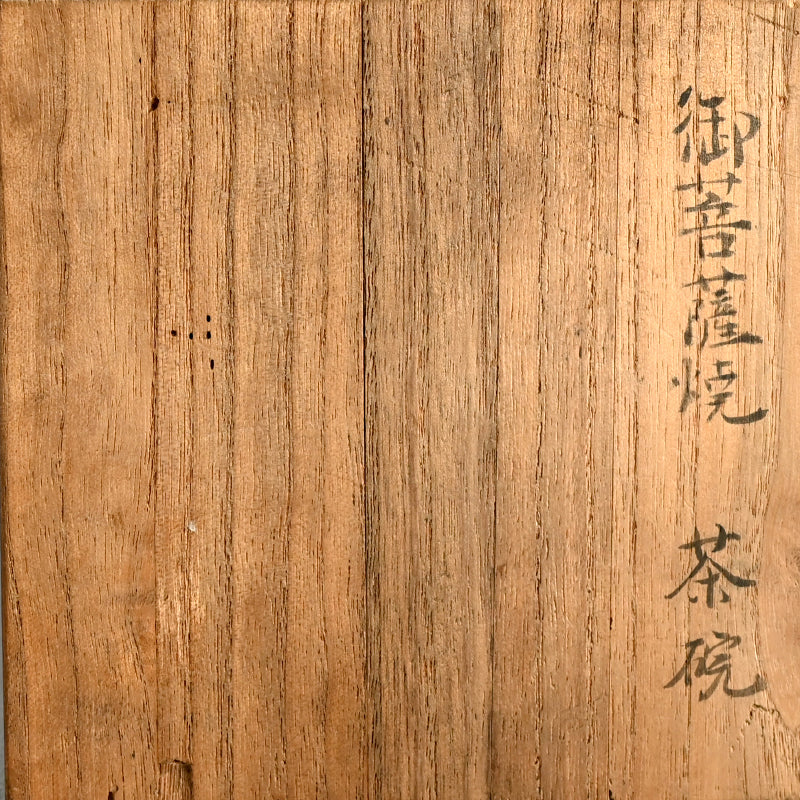 御菩薩焼 茶碗